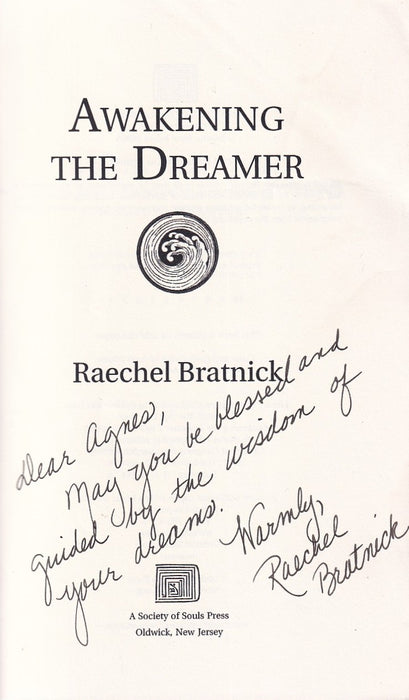 AWAKENING
THE DREAMER
Raechel Bratnick
Dear Agnes,
May you be blessed and
guided by the wisdom of
your dreams.
Warmly,
Raechel
Bratnick
A Society of Souls Press
Oldwick, New Jersey